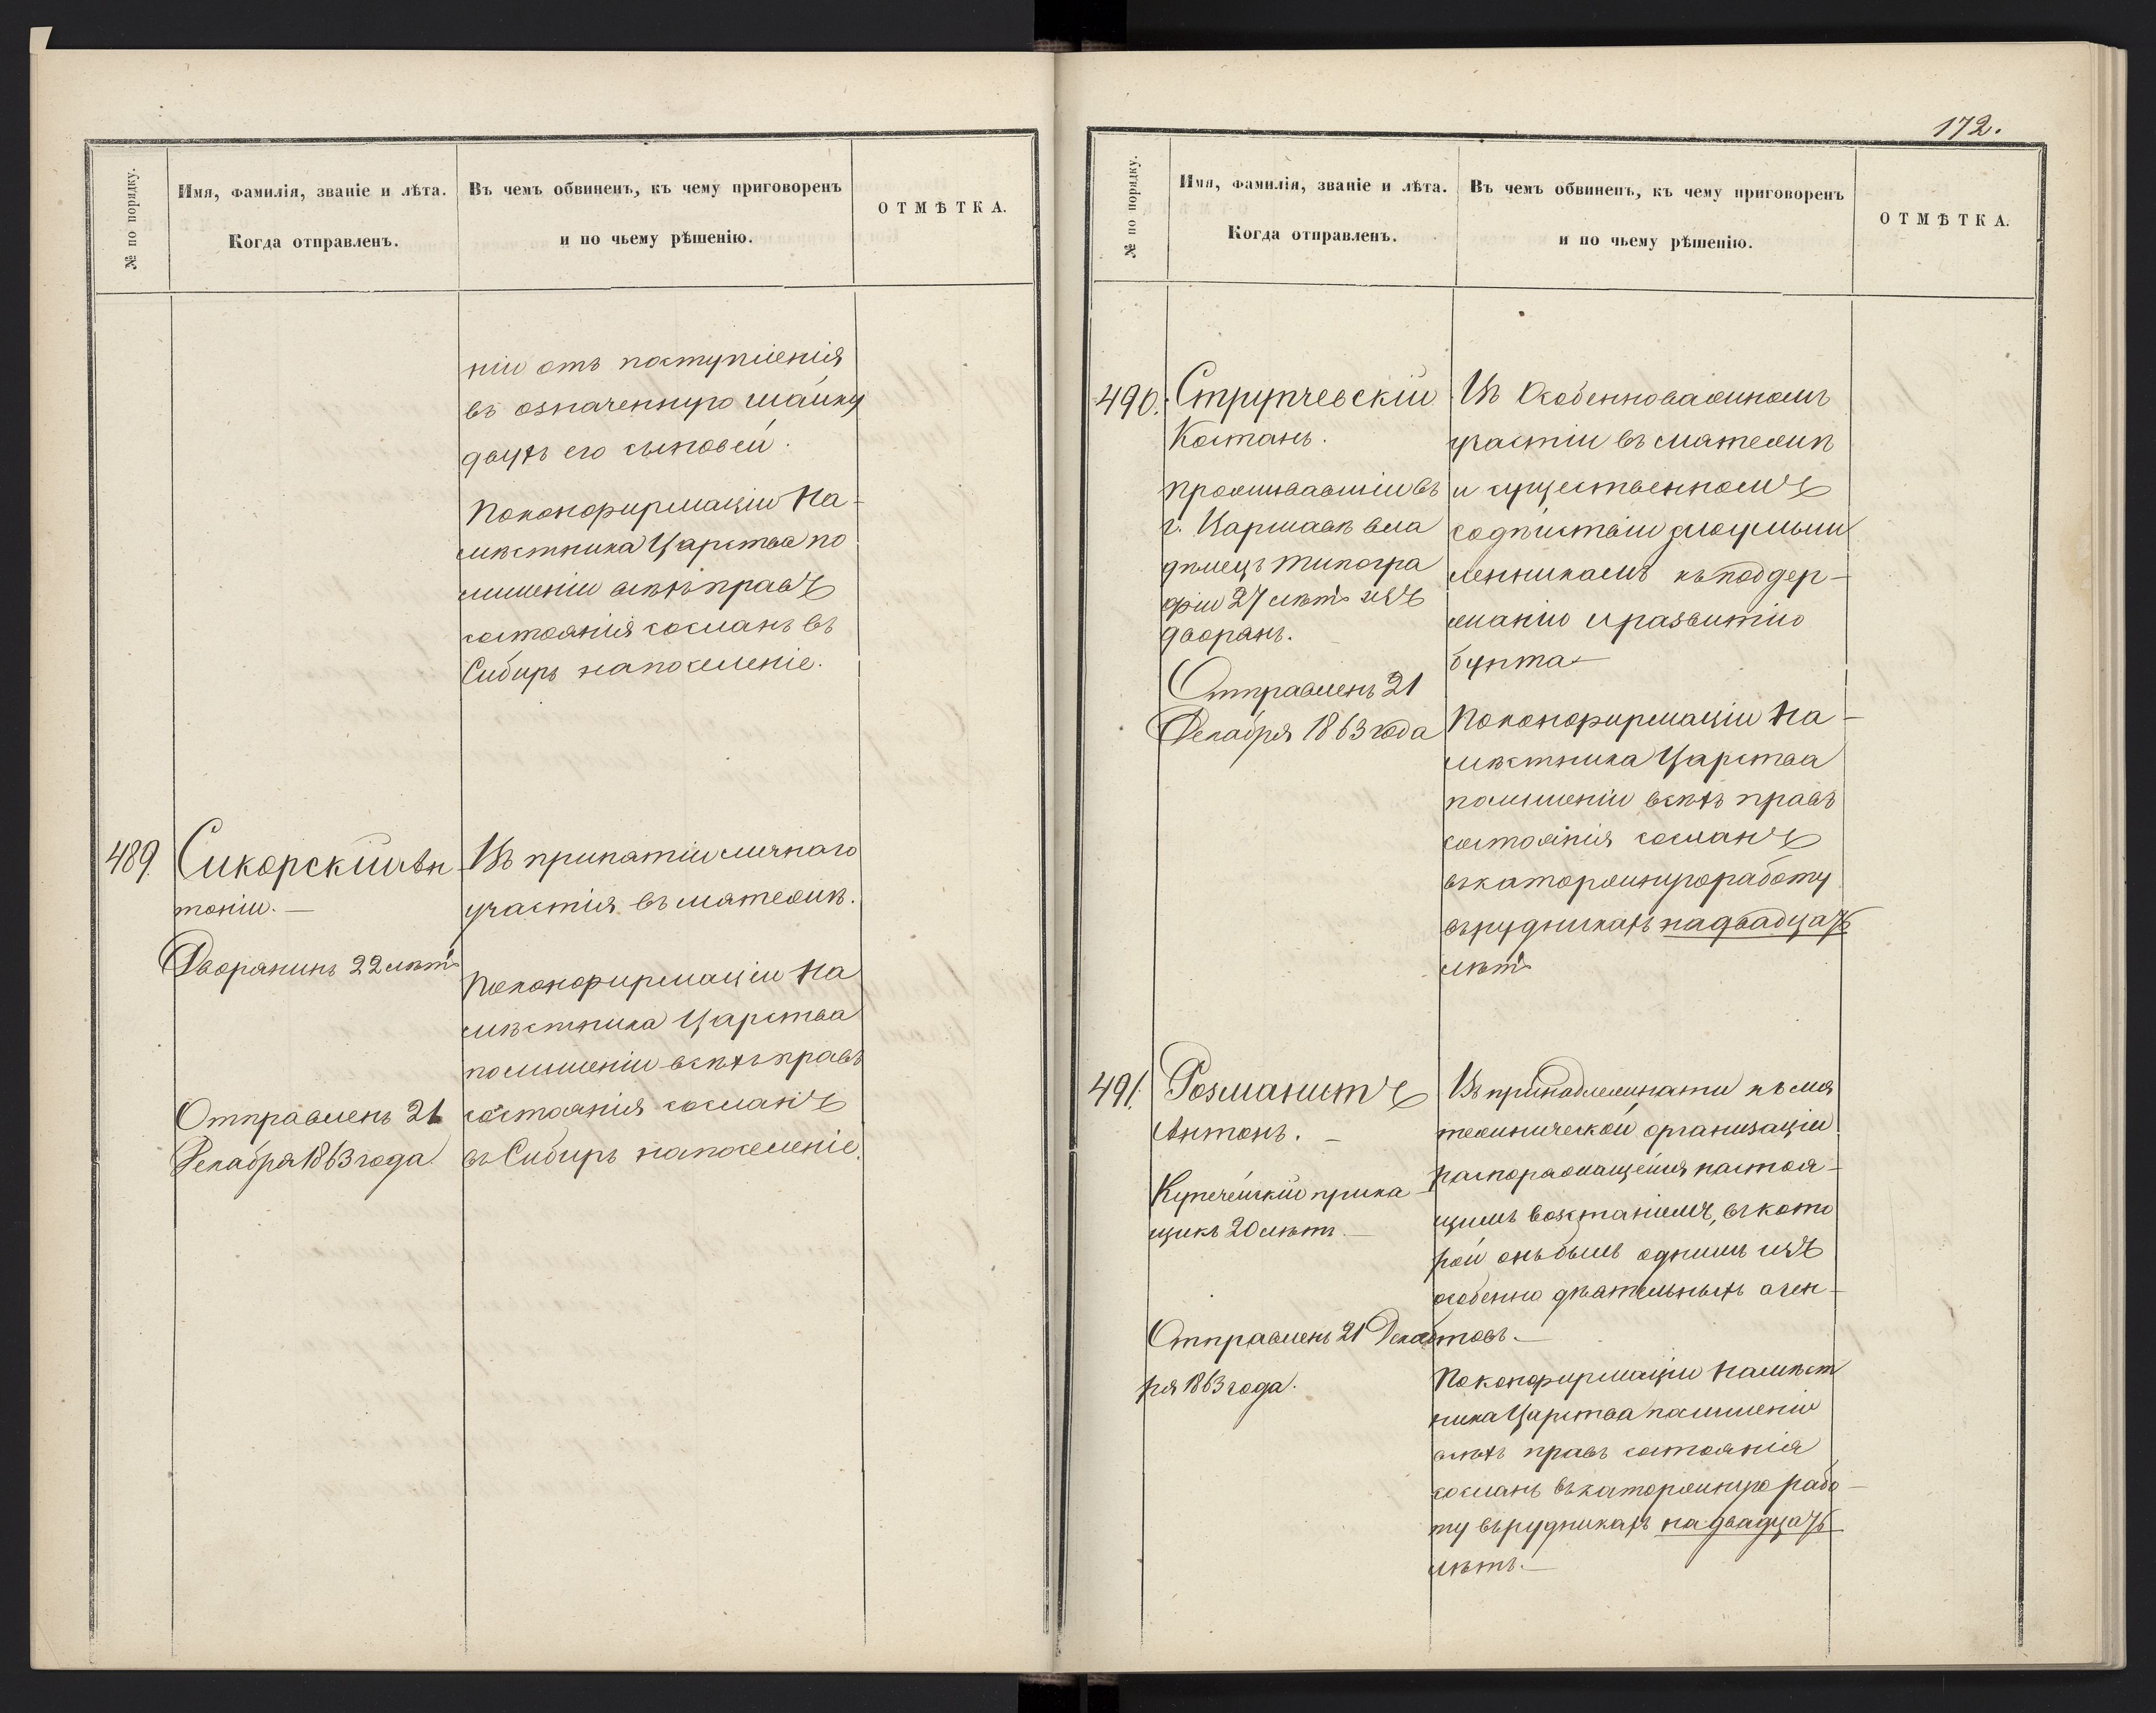 № по порядку.
Имя, фамилія, званіе и лѣта.
Когда отправленъ.
Въ чемъ обвиненъ, къ чему приговоренъ
и по чьему рѣшенію.
ОТМѢТКА.
ніи отъ поступленія
въ означенную шайку
двухъ его сыновей.
По конфирмаціи На-
мѣстника Царства по
лишеніи всѣхъ правъ
состоянія сосланъ въ
Сибирь на поселеніе.
489.
Сикорскій Ан
тоній.—
Дворянинъ 22 лѣтъ
Отправленъ 21
Декабря 1863 года
Въ принятіи личнаго
участія въ мятежѣ.
По конфирмаціи На
мѣстника Царства
по лишеніи всѣхъ правъ
состоянія сосланъ
въ Сибирь на поселеніе.
172.
№ по порядку.
Имя, фамилія, званіе и лѣта.
Когда отправленъ.
Въ чемъ обвиненъ, къ чему приговоренъ
и по чьему рѣшенію.
ОТМѢТКА.
490.
Струпчевскій
Костанъ.
Проживавшій въ
г. Варшавѣ вла
дѣлецъ типогра
фіи 27 лѣтъ изъ
дворянъ.
Отправленъ 21
Декабря 1863 года
Въ особенно важномъ
участіи въ мятежѣ
и существенномъ
содѣйствіи злоумыш
ленникамъ къ поддер-
жанію и развитію
бунта—
По конфирмаціи На-
мѣстника Царства
по лишеніи всѣхъ правъ
состоянія сосланъ
въ каторжную работу
въ рудникахъ на двадцать
лѣтъ
491.
Розманитъ
Антонъ.—
Купеческій прика
щикъ 20 лѣтъ.—
Отправленъ 21 Декаб
ря 1863 года.
Въ принадлежности къ мя
тежнической организаціи
распоряжащейся настоя-
щимъ возстаніемъ, въ кото
рой онъ былъ однимъ изъ
особенно дѣятельныхъ аген-
товъ.—
По конфирмаціи Намѣст
ника Царства по лишеніи
всѣхъ правъ состоянія
сосланъ въ каторжную рабо-
ту въ рудникахъ на двадцать
лѣтъ.—